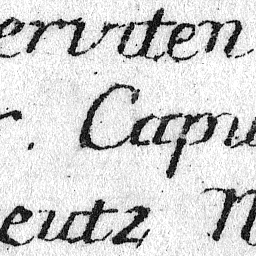 erviten
r. Capu
eutz N